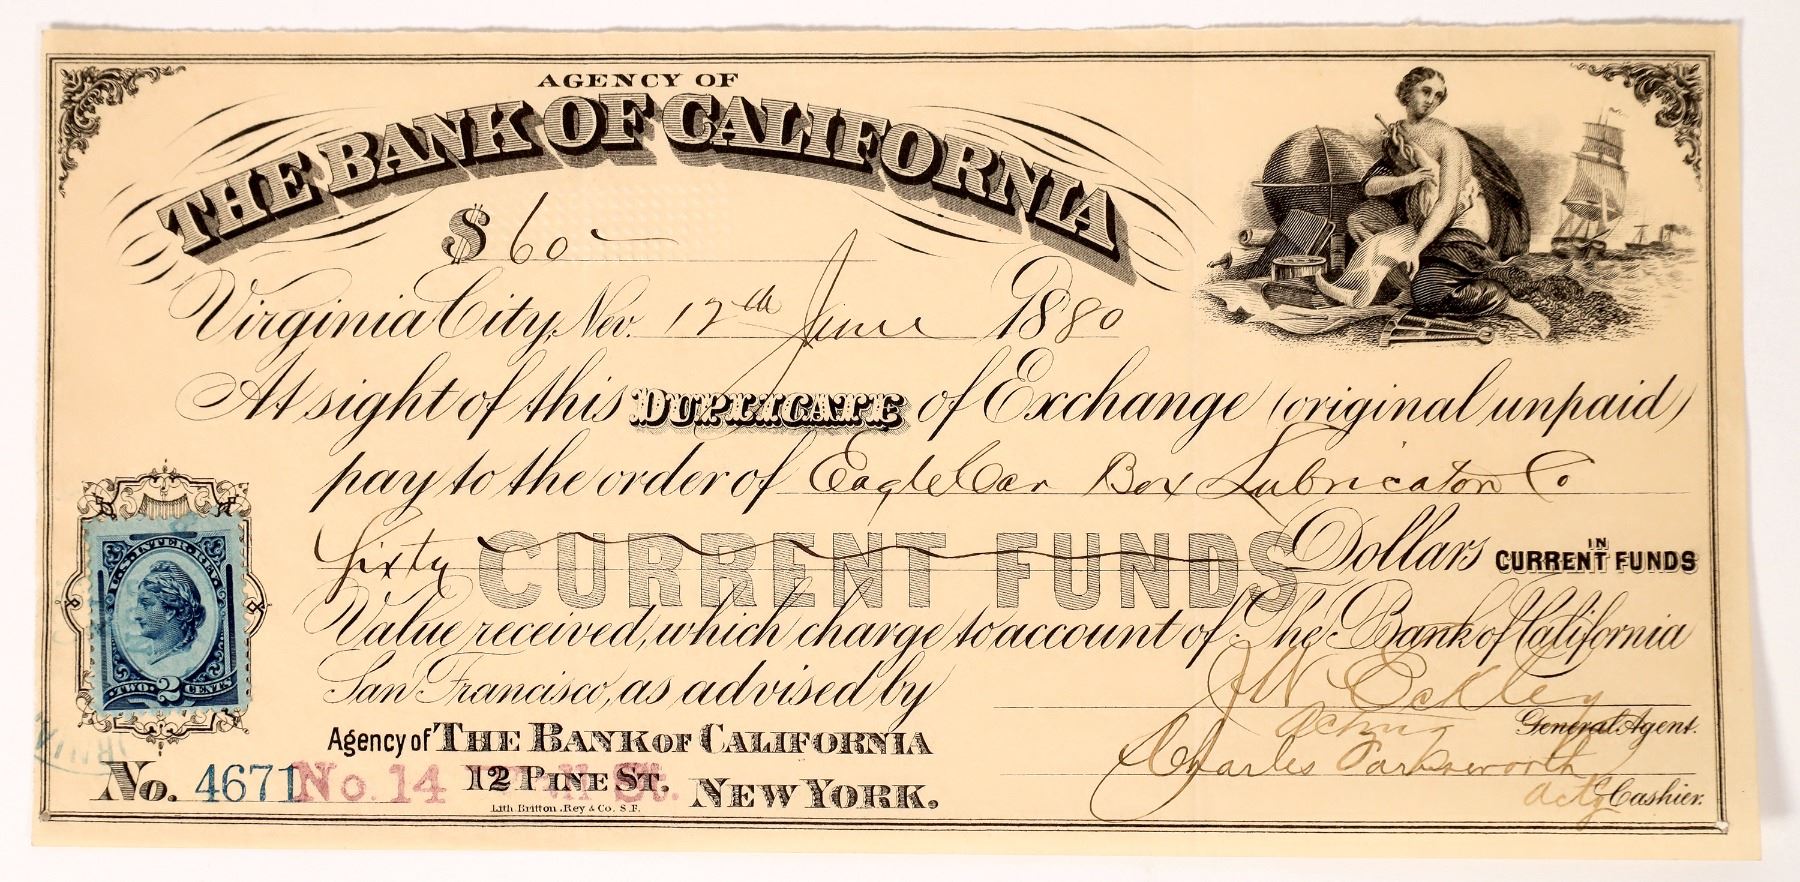 AGENCY OF
THE BANK OF CALIFORNIA
$ 60
Virginia City, Nev. 12th June 1880
At sight of this DUPLICATE of Exchange (original unpaid)
pay to the order of Eagle Car Box Lubricator Co
Sixty CURRENT FUNDS Dollars IN CURRENT FUNDS
Value received, which charge to account of The Bank of California
San Francisco, as advised by
J W Eckley
Acting General Agent.
Agency of THE BANK OF CALIFORNIA
12 PINE ST. NEW YORK.
Charles
actg Cashier.
No. 4671 No. 14 St.
Lith. Britton, Rey & Co. S.F.
U.S. INTER. REV.
TWO 2 CENTS